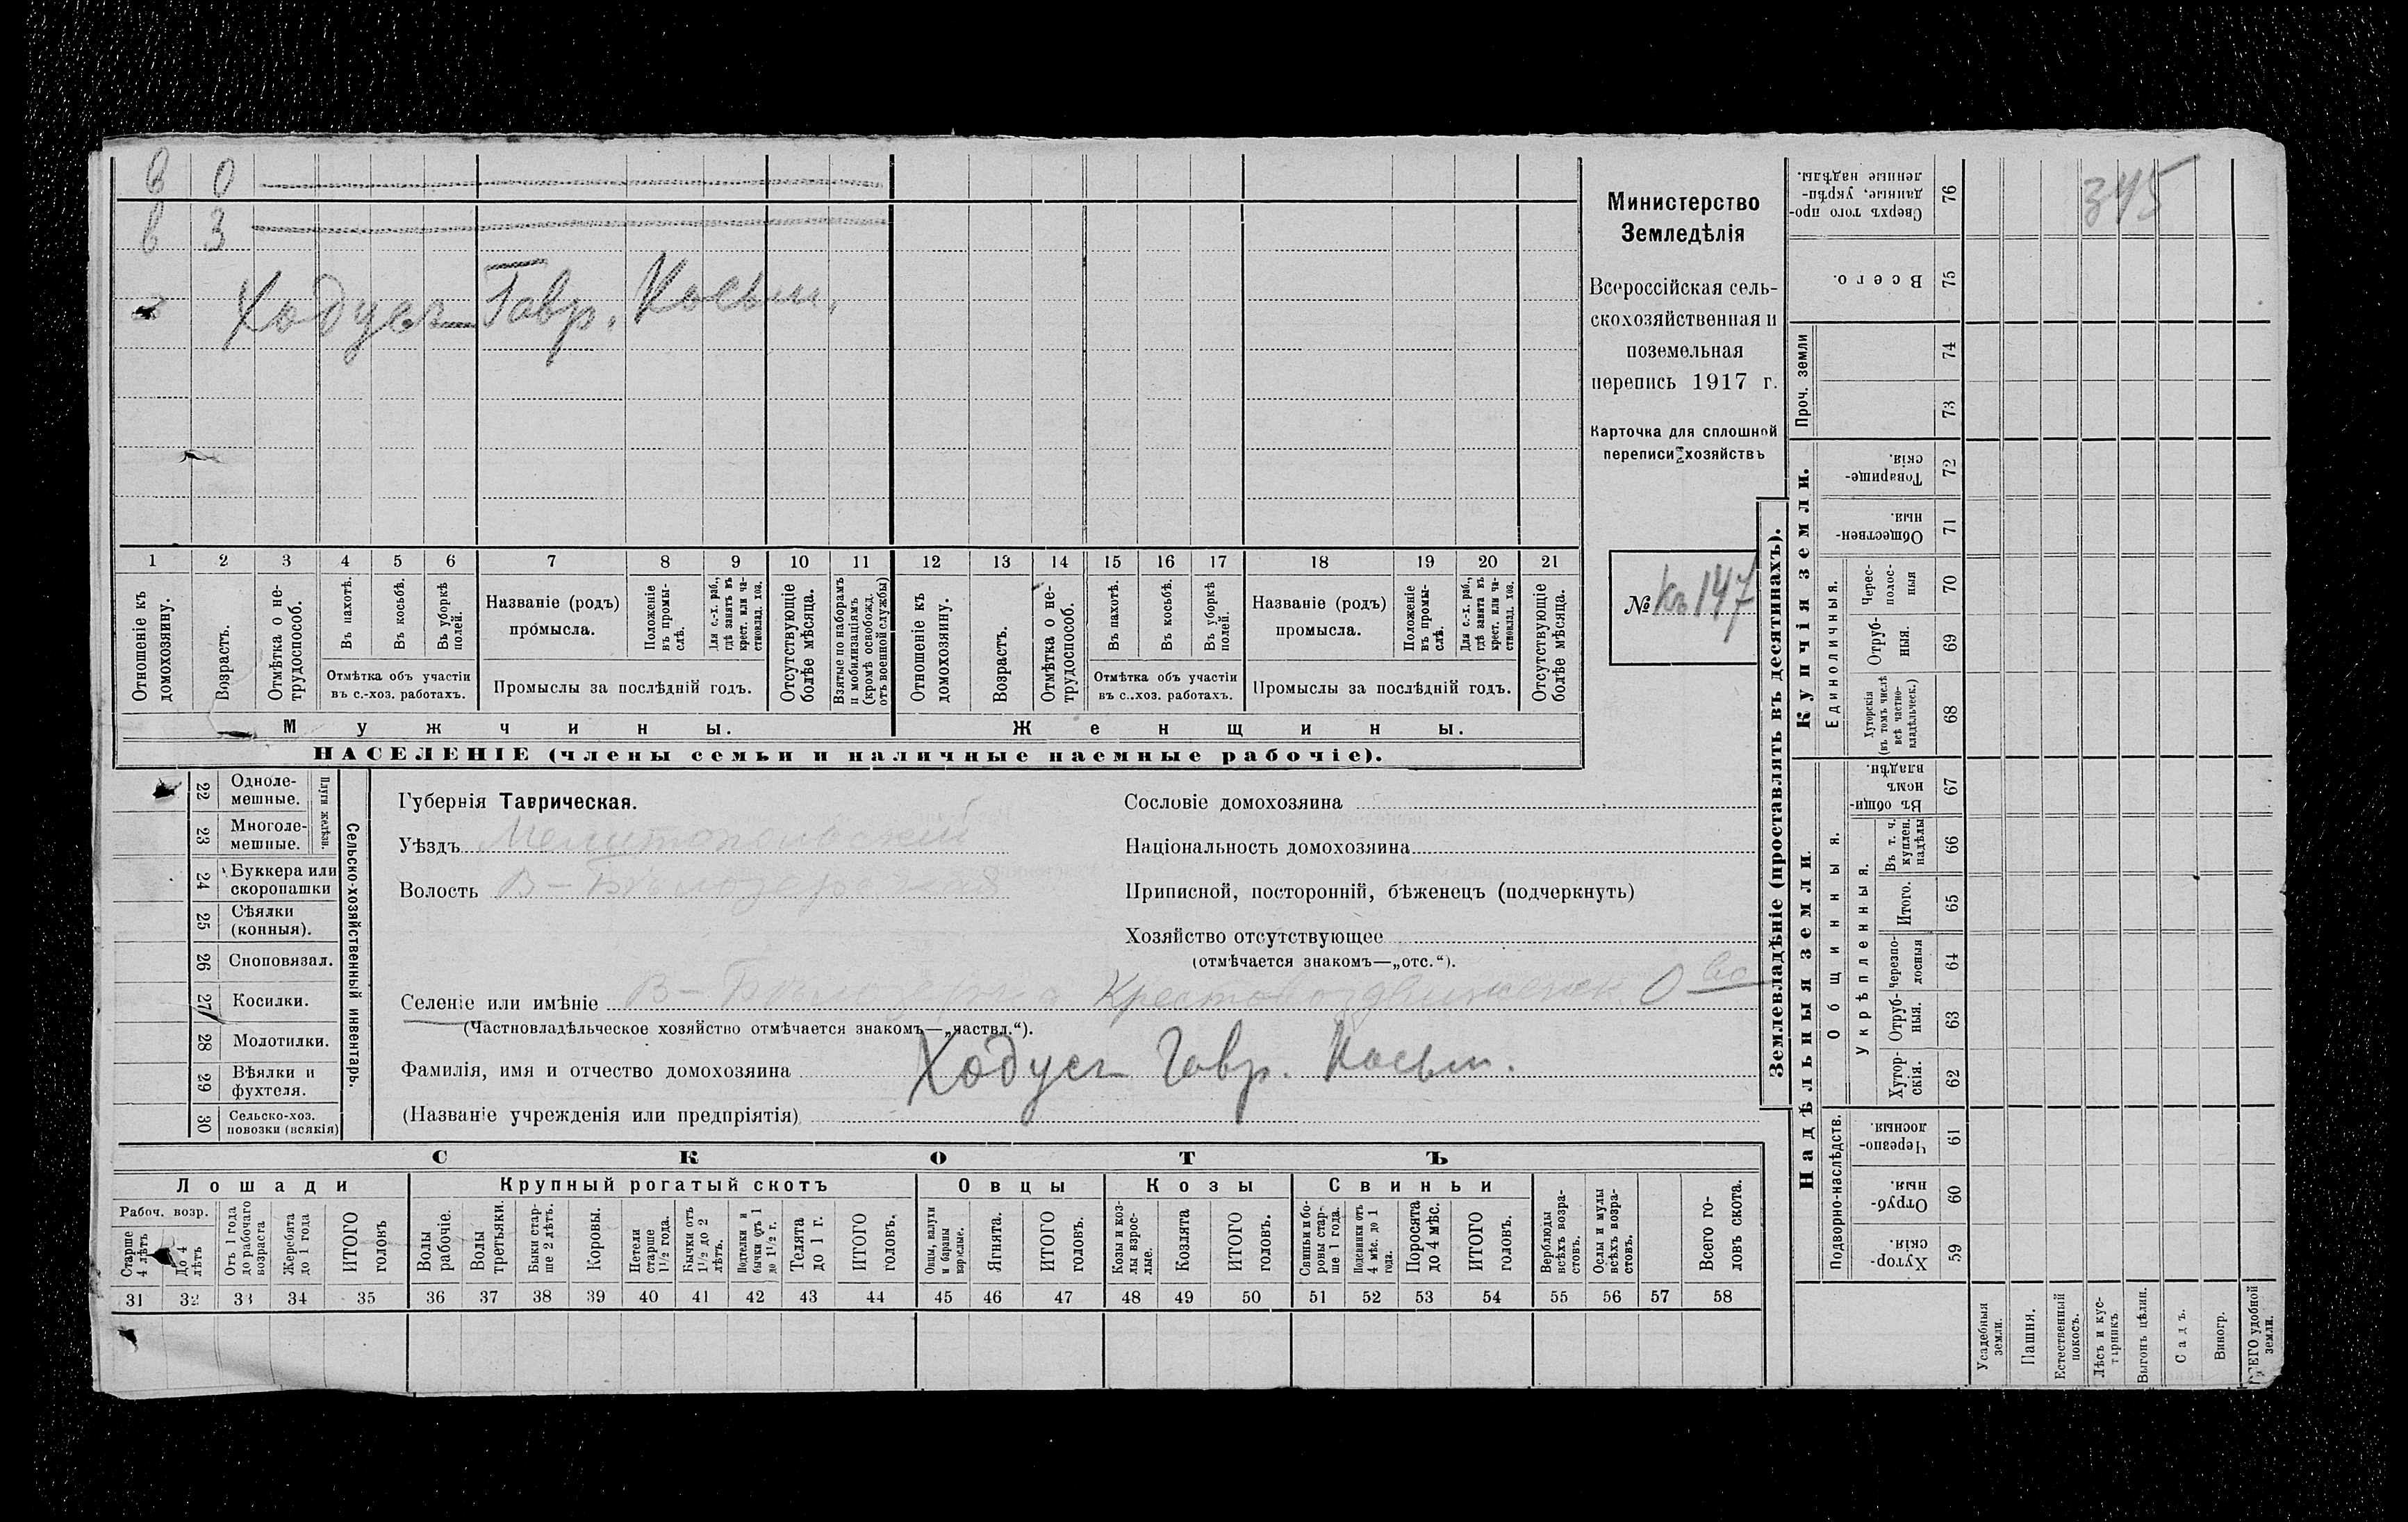 в 0
в 3
Ходусъ Гавр. Косьм.
1 2 3 4 5 6 7 8 9 10 11 12 13 14 15 16 17 18 19 20 21
Отношеніе къ домохозяину.
Возрастъ.
Отмѣтка о не-трудоспособ.
Въ пахотѣ.
Въ косьбѣ.
Въ уборкѣ полей.
Отмѣтка объ участіи
въ с.-хоз. работахъ.
Названіе (родъ)
промысла.
Положеніе въ промы-слѣ.
Для с.-х. раб., гдѣ занятъ въ крест. или ча-стновлад. хоз.
Промыслы за послѣдній годъ.
Отсутствующіе болѣе мѣсяца.
Взятые по наборамъ и мобилизаціямъ (кромѣ освобожд. отъ военной службы)
Отношеніе къ домохозяину.
Возрастъ.
Отмѣтка о не-трудоспособ.
Въ пахотѣ.
Въ косьбѣ.
Въ уборкѣ полей.
Отмѣтка объ участіи
въ с..хоз. работахъ.
Названіе (родъ)
промысла.
Положеніе въ промы-слѣ.
Для с.-х. раб., гдѣ занята въ крест. или ча-стновлад. хоз.
Промыслы за послѣдній годъ.
Отсутствующіе болѣе мѣсяца.
Мужчины.
Женщины.
НАСЕЛЕНІЕ (члены семьи и наличные наемные рабочіе).
Министерство
Земледѣлія
Всероссійская сель-
скохозяйственная и
поземельная
перепись 1917 г.
Карточка для сплошной
переписи хозяйствъ
№ Кр 147
22 Одноле-
мешные.
23 Многоле-
мешные.
Плуги желѣзн.
24 Буккера или
скоропашки
25 Сѣялки
(конныя).
26 Сноповязал.
27 Косилки.
28 Молотилки.
29 Вѣялки и
фухтеля.
30 Сельско-хоз.
повозки (всякія)
Сельско-хозяйственный инвентарь.
Губернія Таврическая.
Уѣздъ Мелитопольскій
Волость В-Бѣлозерская
Селеніе или имѣніе В-Бѣлозерка Крестовоздвиженск. О-во
(Частновладѣльческое хозяйство отмѣчается знакомъ—„частвл.“).
Фамилія, имя и отчество домохозяина Ходусъ Гавр. Косьм.
(Названіе учрежденія или предпріятія)
Сословіе домохозяина
Національность домохозяина
Приписной, посторонній, бѣженецъ (подчеркнуть)
Хозяйство отсутствующее
(отмѣчается знакомъ—„отс.“).
СКОТЪ
Лошади
Крупный рогатый скотъ
Овцы
Козы
Свиньи
Рабоч. возр.
Старше 4 лѣтъ
До 4 лѣтъ
Отъ 1 года до рабочаго возраста
Жеребята до 1 года
ИТОГО головъ
Волы рабочіе.
Волы третьяки.
Быки стар-ше 2 лѣтъ.
Коровы.
Нетели старше 1½ года.
Бычки отъ 1½ до 2 лѣтъ.
Подтелки и бычки отъ 1 до 1½ г.
Телята до 1 г.
ИТОГО головъ.
Овцы, валухи и бараны взрослые.
Ягнята.
ИТОГО головъ.
Козы и коз-лы взрос-лые.
Козлята
ИТОГО головъ.
Свиньи и бо-ровы стар-ше 1 года.
Подсвинки отъ 4 мѣс. до 1 года.
Поросята до 4 мѣс.
ИТОГО головъ.
Верблюды всѣхъ возра-стовъ.
Ослы и мулы всѣхъ возра-стовъ.
Всего го-ловъ скота.
31 32 33 34 35 36 37 38 39 40 41 42 43 44 45 46 47 48 49 50 51 52 53 54 55 56 57 58
Землевладѣніе (проставлять въ десятинахъ).
345
Сверхъ того про-даннные, укрѣп-ленные надѣлы. 76
Всего. 75
Проч. земли
74
73
Купчія земли.
Товарище-скія. 72
Обществен-ныя. 71
Единоличныя.
Черес-полос-ныя 70
Отруб-ныя. 69
Хуторскія (въ томъ числѣ всѣ частно-владѣльческ.) 68
Надѣльныя земли
Общинныя.
Въ общин-номъ владѣн. 67
Укрѣпленныя.
Въ т. ч. куплен. надѣлы 66
Итого. 65
черезпо-лосныя 64
Отруб-ныя. 63
Хутор-скія. 62
Подворно-наслѣдств.
Черезпо-лосныя. 61
Отруб-ныя. 60
Хутор-скія. 59
Усадебныя земли.
Пашня.
Естественный покосъ.
Лѣсъ и кус-тарникъ
Выгонъ цѣлин.
Садъ.
Виногр.
ВСЕГО удобной земли.